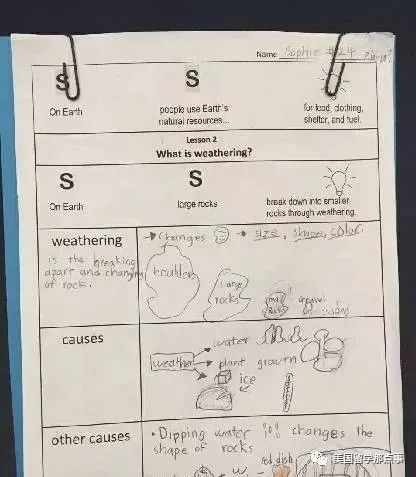 Name Sophie #24
S
S
On Earth
people use Earth's
natural resources...
for food, clothing,
shelter, and fuel.
Lesson 2
What is weathering?
S
S
On Earth
large rocks
break down into smaller
rocks through weathering.
weathering
is the breaking
apart and changing
of rock.
→ Changes → size, shape, color
boulder
large
rocks
small
rocks
gravel
causes
weather
water
plant growth
ice
other causes
• Dipping water changes the
shape of rocks
red dish
美国留学那点事